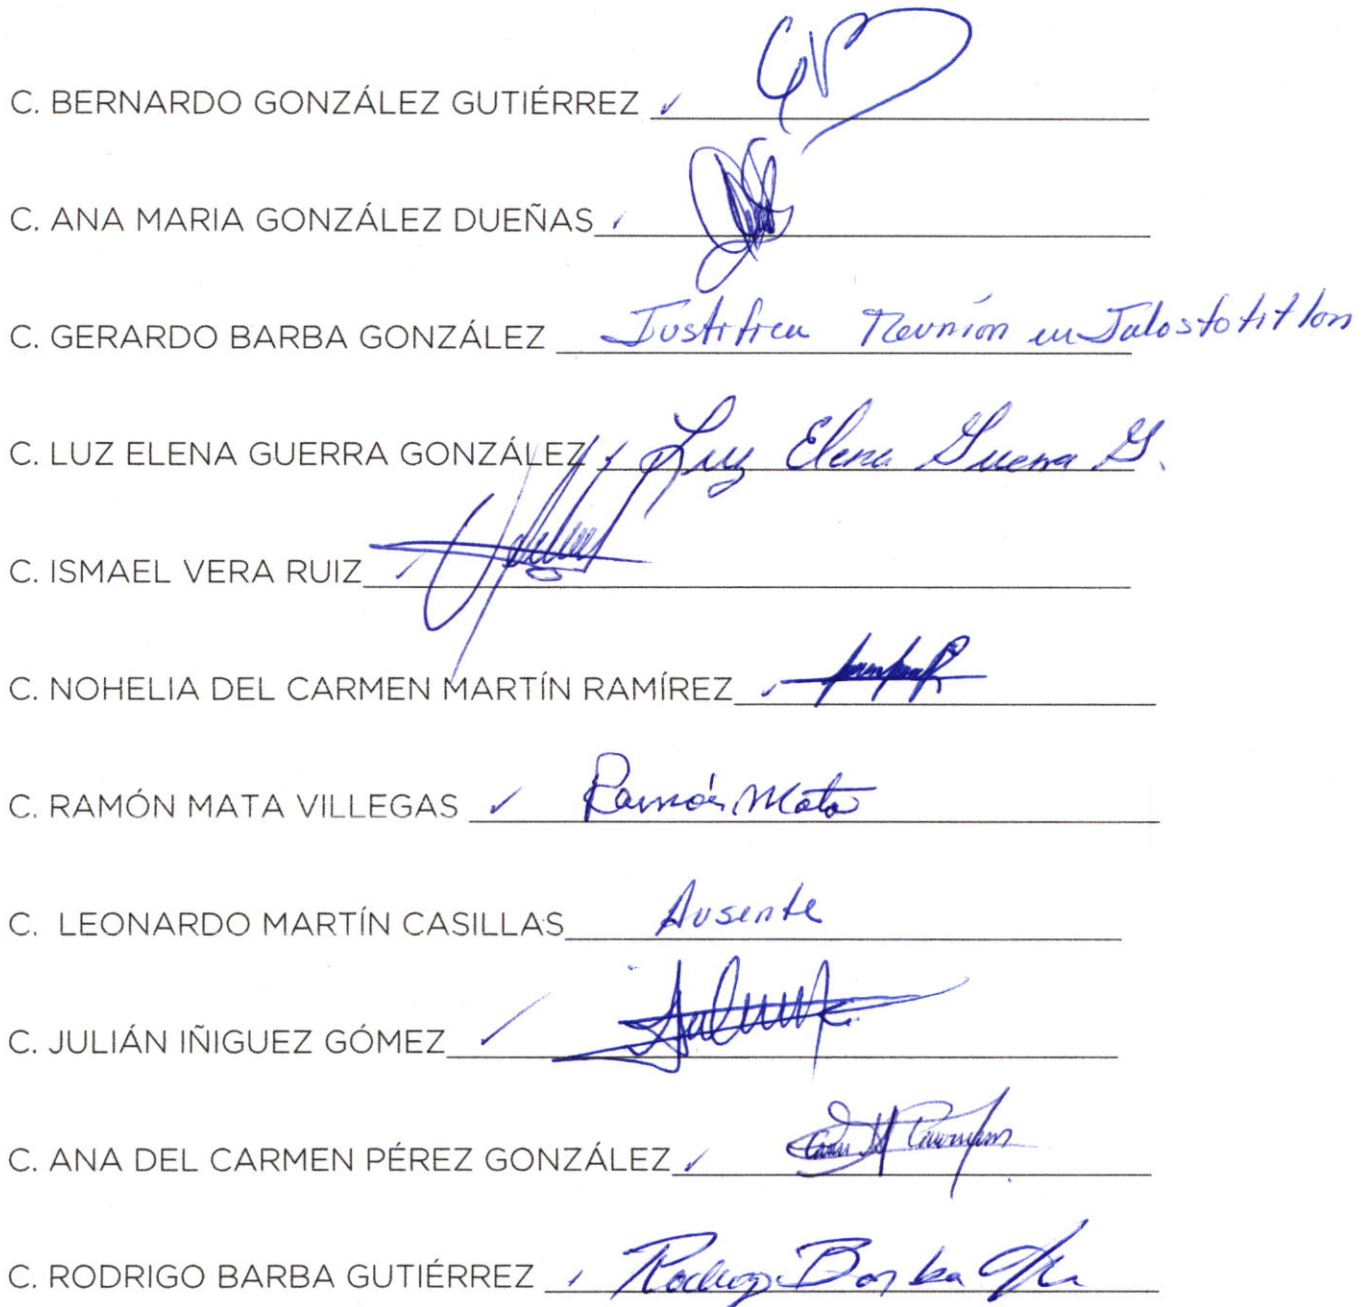 C. BERNARDO GONZÁLEZ GUTIÉRREZ
C. ANA MARIA GONZÁLEZ DUEÑAS
C. GERARDO BARBA GONZÁLEZ Justifica Reunión en Jalostotitlon
C. LUZ ELENA GUERRA GONZÁLEZ Luz Elena Guerra G.
C. ISMAEL VERA RUIZ
C. NOHELIA DEL CARMEN MARTÍN RAMÍREZ
C. RAMÓN MATA VILLEGAS Ramón Mata
C. LEONARDO MARTÍN CASILLAS Ausente
C. JULIÁN IÑIGUEZ GÓMEZ
C. ANA DEL CARMEN PÉREZ GONZÁLEZ
C. RODRIGO BARBA GUTIÉRREZ Rodrigo Barba